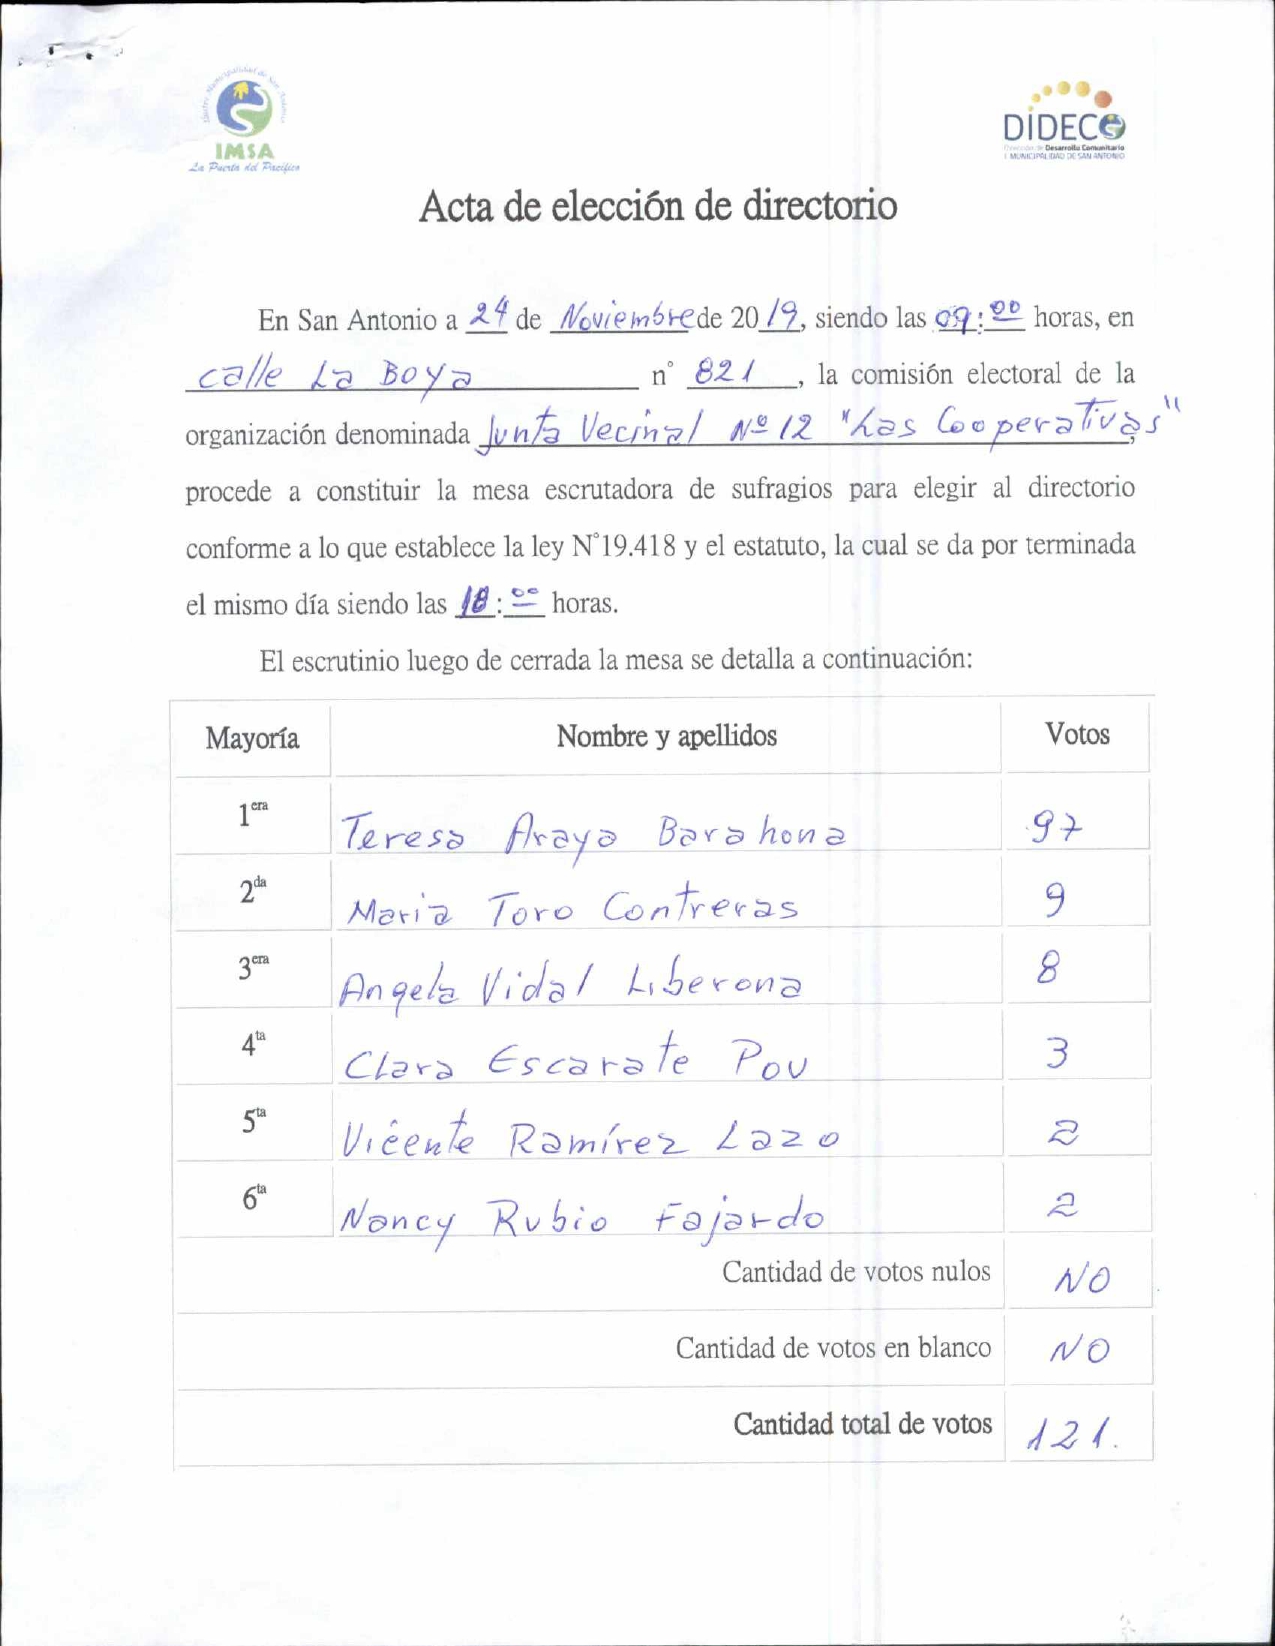 Ilustre Municipalidad de San Antonio
IMSA
La Puerta del Pacífico
DIDECO
Dirección de Desarrollo Comunitario
I. MUNICIPALIDAD DE SAN ANTONIO
Acta de elección de directorio
En San Antonio a 24 de Noviembre de 2019, siendo las 09:00 horas, en
calle La Boya n° 821, la comisión electoral de la
organización denominada Junta Vecinal Nº 12 "Las Cooperativas",
procede a constituir la mesa escrutadora de sufragios para elegir al directorio
conforme a lo que establece la ley N°19.418 y el estatuto, la cual se da por terminada
el mismo día siendo las 18:00 horas.
El escrutinio luego de cerrada la mesa se detalla a continuación:
Mayoría Nombre y apellidos Votos
1era Teresa Araya Barahona 97
2da Maria Toro Contreras 9
3era Angela Vidal Liberona 8
4ta Clara Escarate Pou 3
5ta Vicente Ramírez Lazo 2
6ta Nancy Rubio Fajardo 2
Cantidad de votos nulos NO
Cantidad de votos en blanco NO
Cantidad total de votos 121.